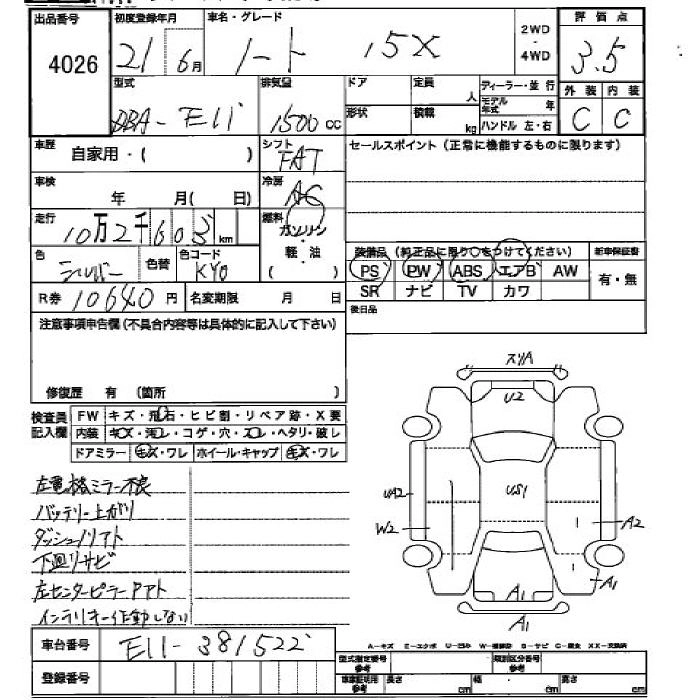 出品番号
4026
初度登録年月
21 6月
車名・グレード
ノート 15X
2WD
・
4WD
評価点
3.5
型式
DBA-E11
排気量
1500 cc
ドア
形状
定員
人
積載
kg
ディーラー・並行
モデル年式 年
ハンドル 左・右
外装 内装
C C
車歴
自家用・( )
シフト
FAT
セールスポイント (正常に機能するものに限ります)
車検
年 月( 日)
冷房
AC
走行
10万2千603 km
燃料
ガソリン
・
軽油
( )
色
シルバー
色替
色コード
KY0
装備品 (純正品に限り○をつけてください)
新車保証書
PS PW ABS エアB AW
有・無
SR ナビ TV カワ
R券 10640円
名変期限 月 日
後日品
注意事項申告欄(不具合内容等は具体的に記入して下さい)
修復歴 有 (箇所 )
検査員記入欄
FW キズ・飛石・ヒビ割・リペア跡・X要
内装 キズ・汚レ・コゲ・穴・スレ・ヘタリ・破レ
ドアミラー キズ・ワレ ホイール・キャップ キズ・ワレ
左電格ミラー不良
バッテリー上がり
ダッシュノリアト
下廻リサビ
左センターピラーPアト
インテリキー作動しない
スリA
U2
UA2
US1
W2
A2
A1
A1
A1
車台番号
E11-381522
登録番号
A-キズ E-エクボ U-凹み W-補修跡 S-サビ C-腐食 XX-交換済
型式指定番号
参考
類別区分番号
参考
車庫証明用
参考
長さ cm
幅 cm
高さ cm